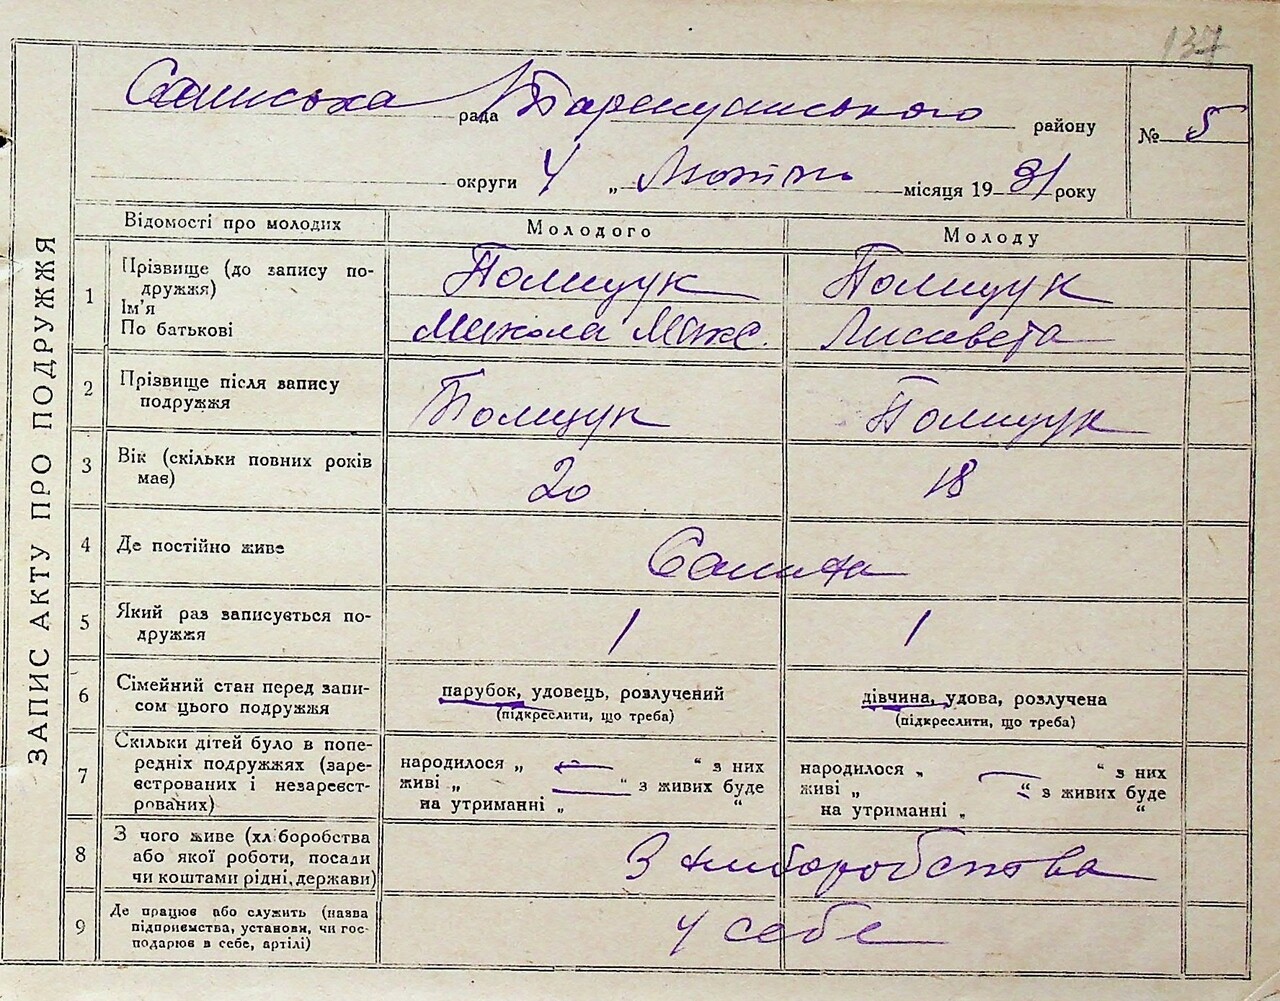 137
рада районУ
№ 5
округи 4 „ Лютого місяця 1931 року
ЗАПИС АКТУ ПРО ПОДРУЖЖЯ
Відомості про молодих Молодого Молоду
1 Прізвище (до запису подружжя) Полищук Полищук
Ім'я
По батькові Микола Макс. Лисавета
2 Прізвище після запису Полищук Полищук
подружжя
3 Вік (скільки повних років 20 18
має)
4 Де постійно живе
5 Який раз записується по- 1 1
дружжя
6 Сімейний стан перед запи- парубок, удовець, розлучений дівчина, удова, розлучена
сом цього подружжя (підкреслити, що треба) (підкреслити, що треба)
7 Скільки дітей було в попе-
редніх подружжях (заре- народилося „ — “ з них народилося „ — “ з них
єстрованих і незареєст- живі „ — “ з живих буде живі „ “ з живих буде
рованих) на утриманні „ “ на утриманні „ “
8 З чого живе (хліборобства З хліборобства
або якої роботи, посади
чи коштами рідні, держави)
9 Де працює або служить (назва у себе
підприємства, установи, чи гос-
подарює в себе, артілі)